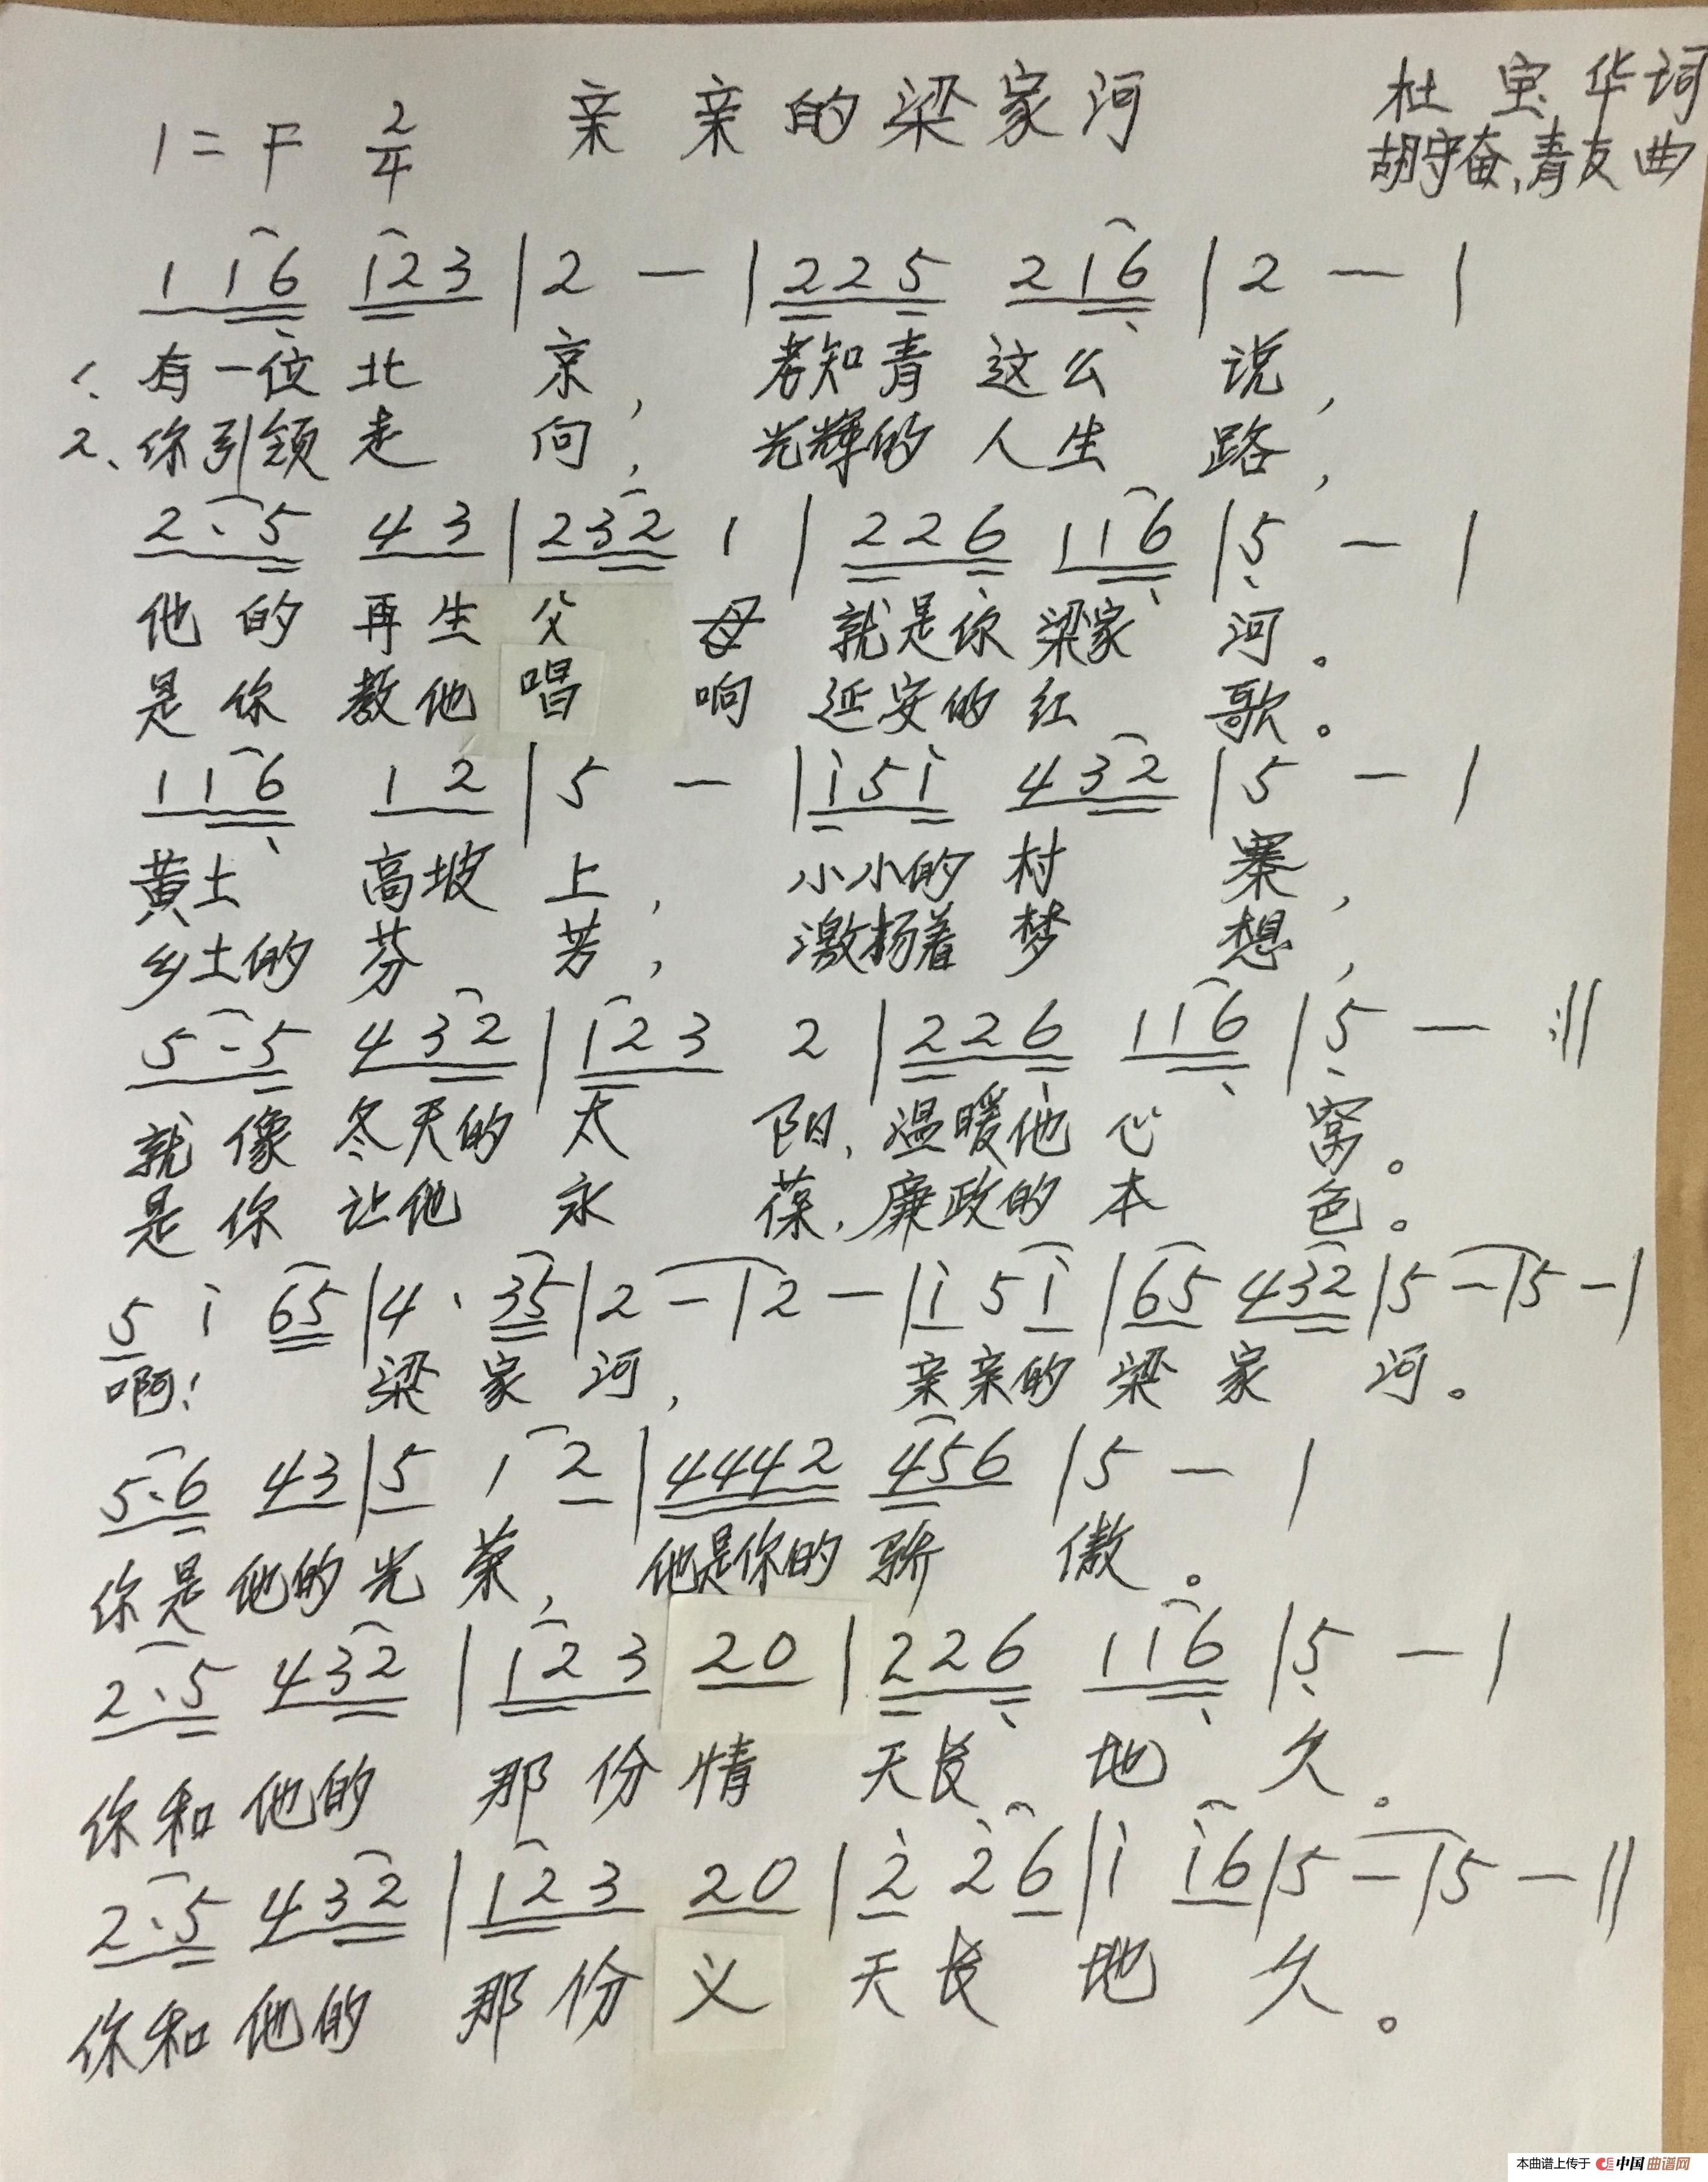 1=F 2/4 亲亲的梁家河 杜宝华词
胡守奋、青友曲
1 1 6 1 2 3 | 2 — | 2 2 5 2 1 6 | 2 — |
1、有一位北京，老知青这么说，
2、你引领走向，光辉的人生路，
2·5 4 3 | 2 3 2 1 | 2 2 6 1 1 6 | 5 — |
他的再生父母就是你梁家河。
是你教他唱响延安的红歌。
1 1 6 1 2 | 5 — | i 5 i 4 3 2 | 5 — |
黄土高坡上，小小的村寨，
乡土的芬芳，激扬着梦想，
5·5 4 3 2 | 1 2 3 2 | 2 2 6 1 1 6 | 5 — :||
就像冬天的太阳，温暖他心窝。
是你让他永葆，廉政的本色。
5 i 6 5 | 4· 3 5 | 2 — | 2 — | i 5 i | 6 5 4 3 2 | 5 — | 5 — |
啊！梁家河，亲亲的梁家河。
5·6 4 3 | 5 1 2 | 4 4 4 2 4 5 6 | 5 — |
你是他的光荣，他是你的骄傲。
2·5 4 3 2 | 1 2 3 2 0 | 2 2 6 1 1 6 | 5 — |
你和他的那份情天长地久。
2·5 4 3 2 | 1 2 3 2 0 | 2 2 6 | i i 6 | 5 — | 5 — ||
你和他的那份义天长地久。
本曲谱上传于 中国曲谱网